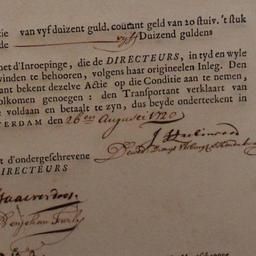 tie van vyf duizent guld. courant geld van 20 stuiv. 't stuk
de vyff Duizend guldens
met d'Inroepinge, die de DIRECTEURS, in tyd en wyle
vinden te behooren, volgens haar origineelen Inleg. Den
ant bekent dezelve Actie op die Conditie aan te nemen,
volkomen genoegen: den Transportant verklaart van
e voldaan en betaalt te zyn, dus beyde onderteekent in
TERDAM den 26en Augustij 1720
t d'ondergeschrevene
DIRECTEURS